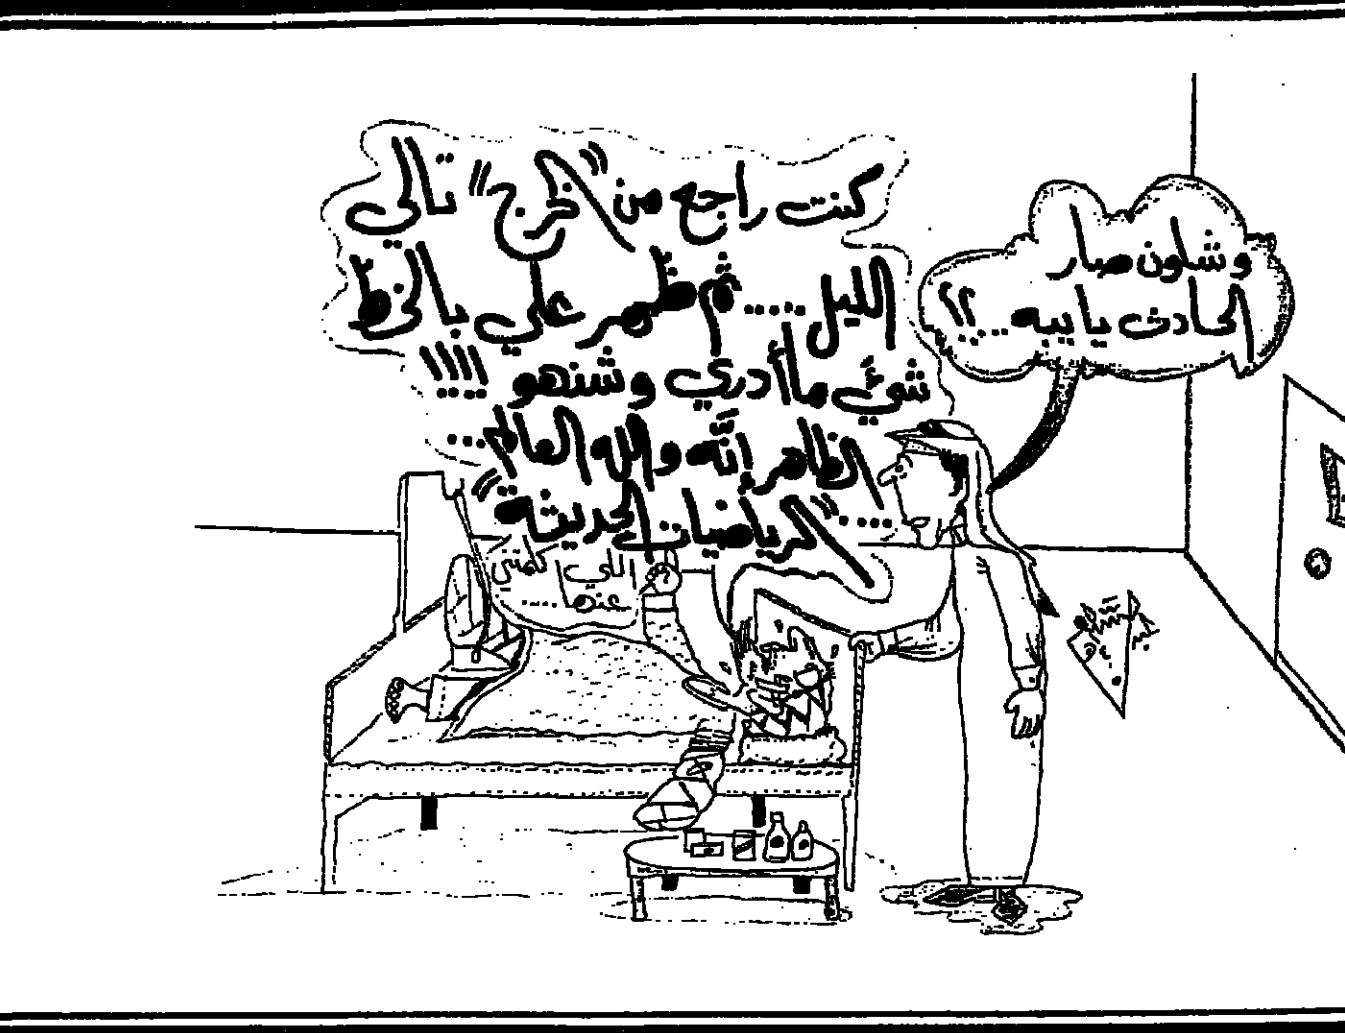 وشلون صار
الحادث يا يبه...؟؟
كنت راجع من "الخرج" تالي
الليل.....ثم ظهر علي بالخط
شيء ما أدري وشنهو !!!!
الظاهر إنَّه والله العالم...
...."كرياضيات الحديثة"
اللي
عنها....